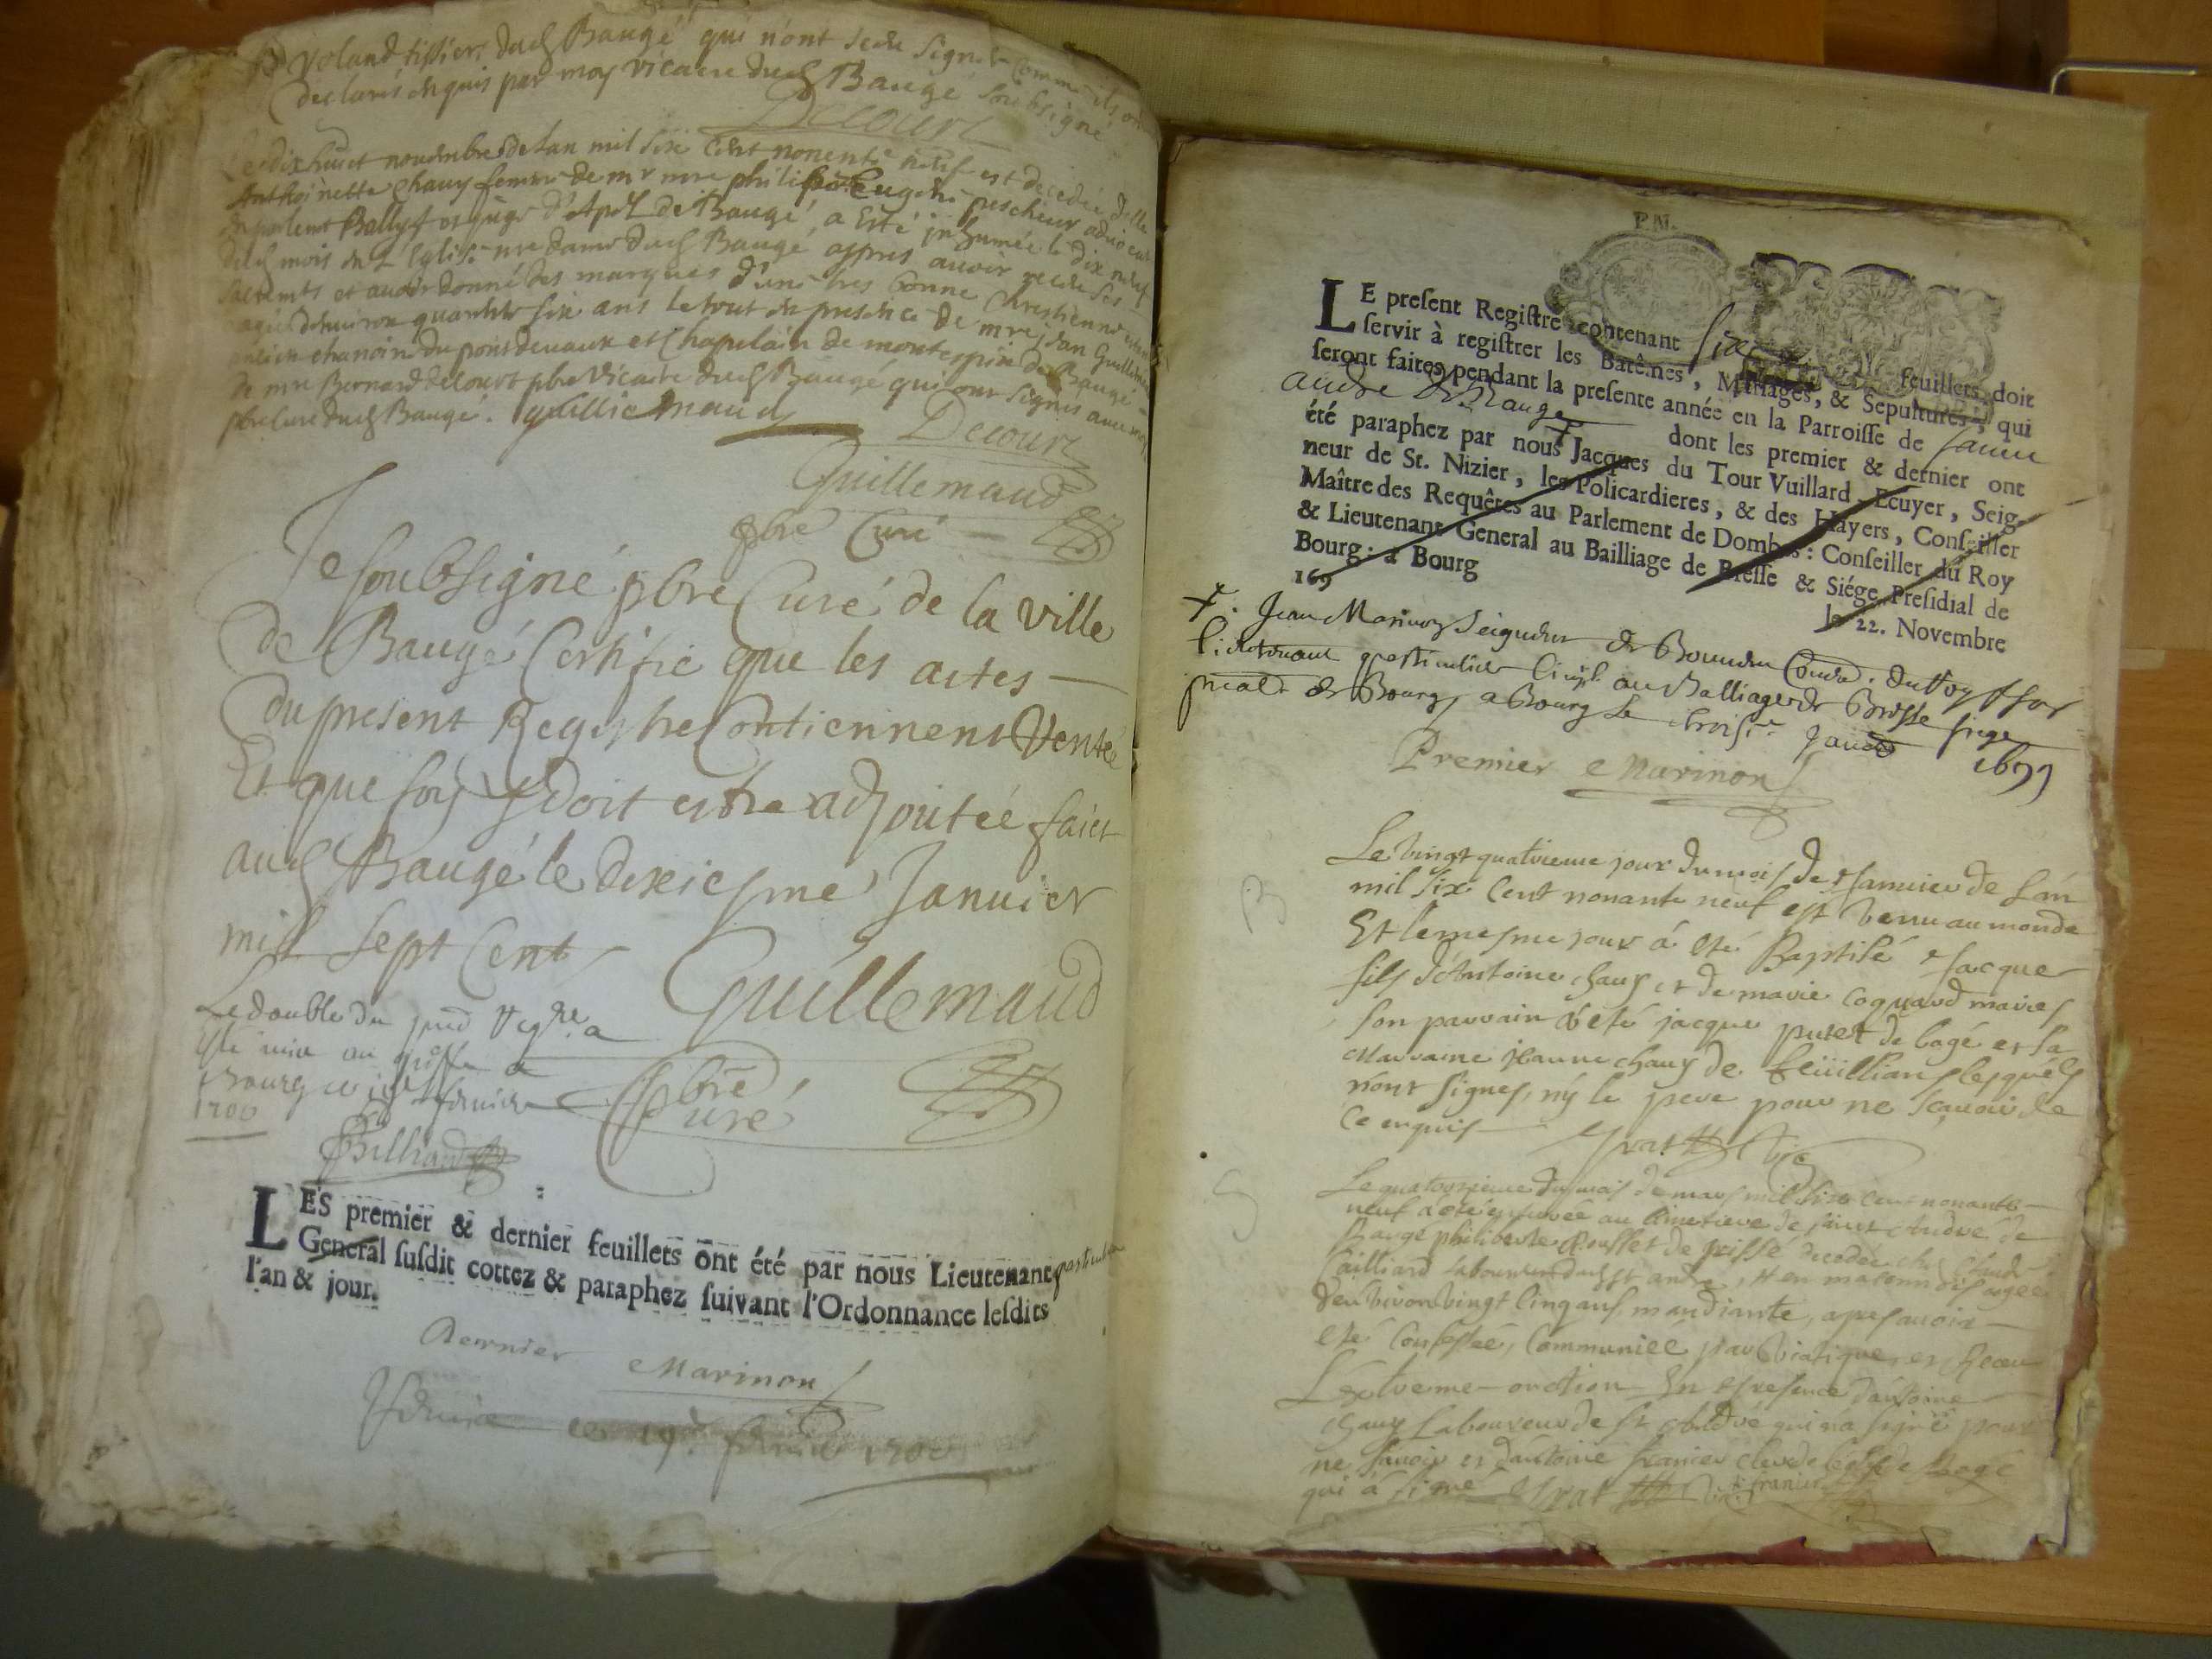 Voland tissier dud Baugé qui nont sceu signer comme ils ont
declarés enquis par moy vicaire dud Baugé soubsigné
Decourt
Le dix huict novembre de lan mil six cent nonente neuf est decedée dlle
Anthoinette Chauy femme de mr mre philippe Eugene pescheur advocat
en parlemt Ballyf et juge d'Apel de Baugé, a esté inhumée le dix neuf
dud mois en L'Eglise nre dame dud Baugé appres avoir receu ses
sacremts et avoir donné des marques d'une tres bonne Chrestienne
agée denviron quarente six ans le tout en presence de mre jean Guillemaud
ancien chanoine du pont devaux et Chapelain de montespin de Baugé
de mre Bernard decourt pbre Vicaire dud Baugé qui ont signés avec moy
pbre Curé dud Baugé. guilliemaud
Decourt
Guillemaud
pbre Curé
Je soubsigné pbre Curé de la ville
de Baugé Certifie que les actes
du present Registre Contiennent Verité
Et que foy y doit estre adjoutée faict
aud Baugé le dixiesme Janvier
mill sept Cent
Guillemaud
pbre
Curé
Le double du pnt Regre a
esté mis au greffe a
Bourg ce
1700
Billiard
LES premier & dernier feuillets ont été par nous Lieutenant particulier
General susdit cottez & paraphez suivant l'Ordonnance lesdits
l'an & jour.
Dernier Marinon
19e 1700
P.M.
LE present Registre contenant six feuillets doit
servir à registrer les Batêmes, Mariages, & Sepultures, qui
seront faites pendant la presente année en la Parroisse de sainct
andre de Bauge dont les premier & dernier ont
été paraphez par nous Jacques du Tour Vuillard Ecuyer, Seig-
neur de St. Nizier, les Policardieres, & des Hayers, Conseiller
Maître des Requêtes au Parlement de Dombes : Conseiller du Roy
& Lieutenant General au Bailliage de Bresse & Siége Presidial de
Bourg: à Bourg le 22. Novembre
169
Jean Marinon Seigneur de Bouvdn Conser. du Roy
lieutenant particulier Civil au Balliage de Bresse siege
presial de Bourg, a Bourg le troise. Janvr 1699
Premier Marinon
Le vingt quatrieme jour du mois de Janvier de l'an
mil six cent nonante neuf est venu au monde
Et le mesme jour à eté Baptisé Jacque
fils d'Antoine chauy et de marie coquard mariés
son parrain à eté jacque putet de bagé et sa
Marraine jeanne chauy de feüillian lesquels
n'ont signes, ny le pere pour ne sçavoir de
ce enquis
prat Vic
B
S
Le quatorzieme du mois de mars mil six cent nonante
neuf a eté enterrée au Cimetiere de saint André de
Baugé philiberte Rousset de prissé decedée chez Claude
Cailliard laboureur dud st andre, et en maconnois agée
d'environ vingt cinq ans, mandiante, apres avoir
eté Confessée, Communiée par Viatique, et Receu
L'extreme-onction En presence d'Antoine
chauy Laboureur de st André qui n'a signé pour
ne savoir et d'antoine franier clerc de Bagé
qui à signé prat Vic franier